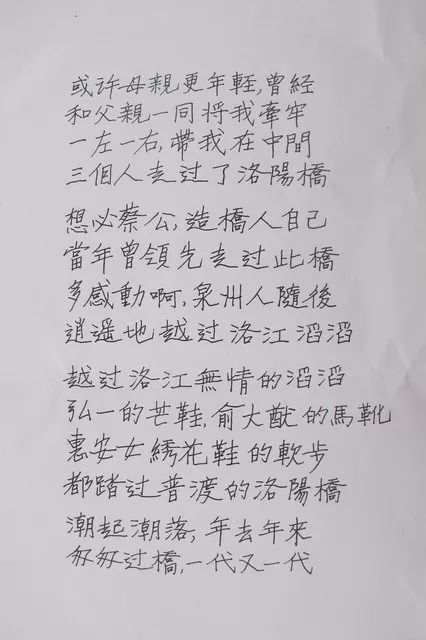 或许母親更年輕,曾経
和父親一同将我牽牢
一左一右,帶我在中間
三個人走过了洛陽橋
想必蔡公,造橋人自己
當年曾領先走过此橋
多感動啊,泉州人隨後
逍遥地越过洛江滔滔
越过洛江無情的滔滔
弘一的芒鞋,俞大猷的馬靴
惠安女綉花鞋的軟步
都踏过普渡的洛陽橋
潮起潮落,年去年來
匆匆过橋,一代又一代